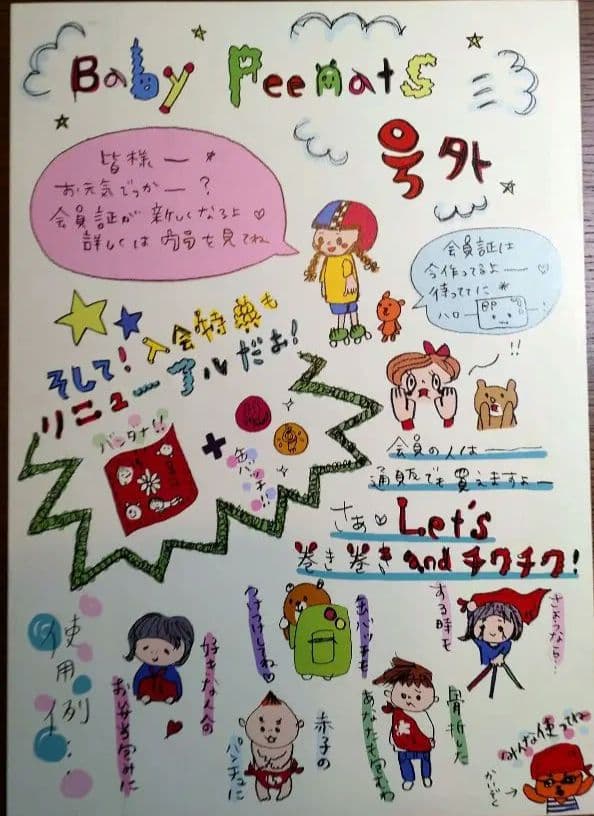 Baby Peenats
号外
皆様ー*
お元気でっかー?
会員証が新しくなるよ♡
詳しくは内員を見てね
会員証は
今作ってるよー♡
待っててに*
ハロー
BP
そして!入会特典も
リニューアルだよ!
バンダナ!!
+
缶バッチ!!
!!
会員の人はー
通販でも買えますよー
さぁ♡Let's
巻き巻きandチクチク!
使用例
は...
好きな人の
お弁当包みに
缶バッチも
つけてね♡
さようなら...
する時も
赤子の
パンチュに
骨折した
あなたも
みんな使ってね